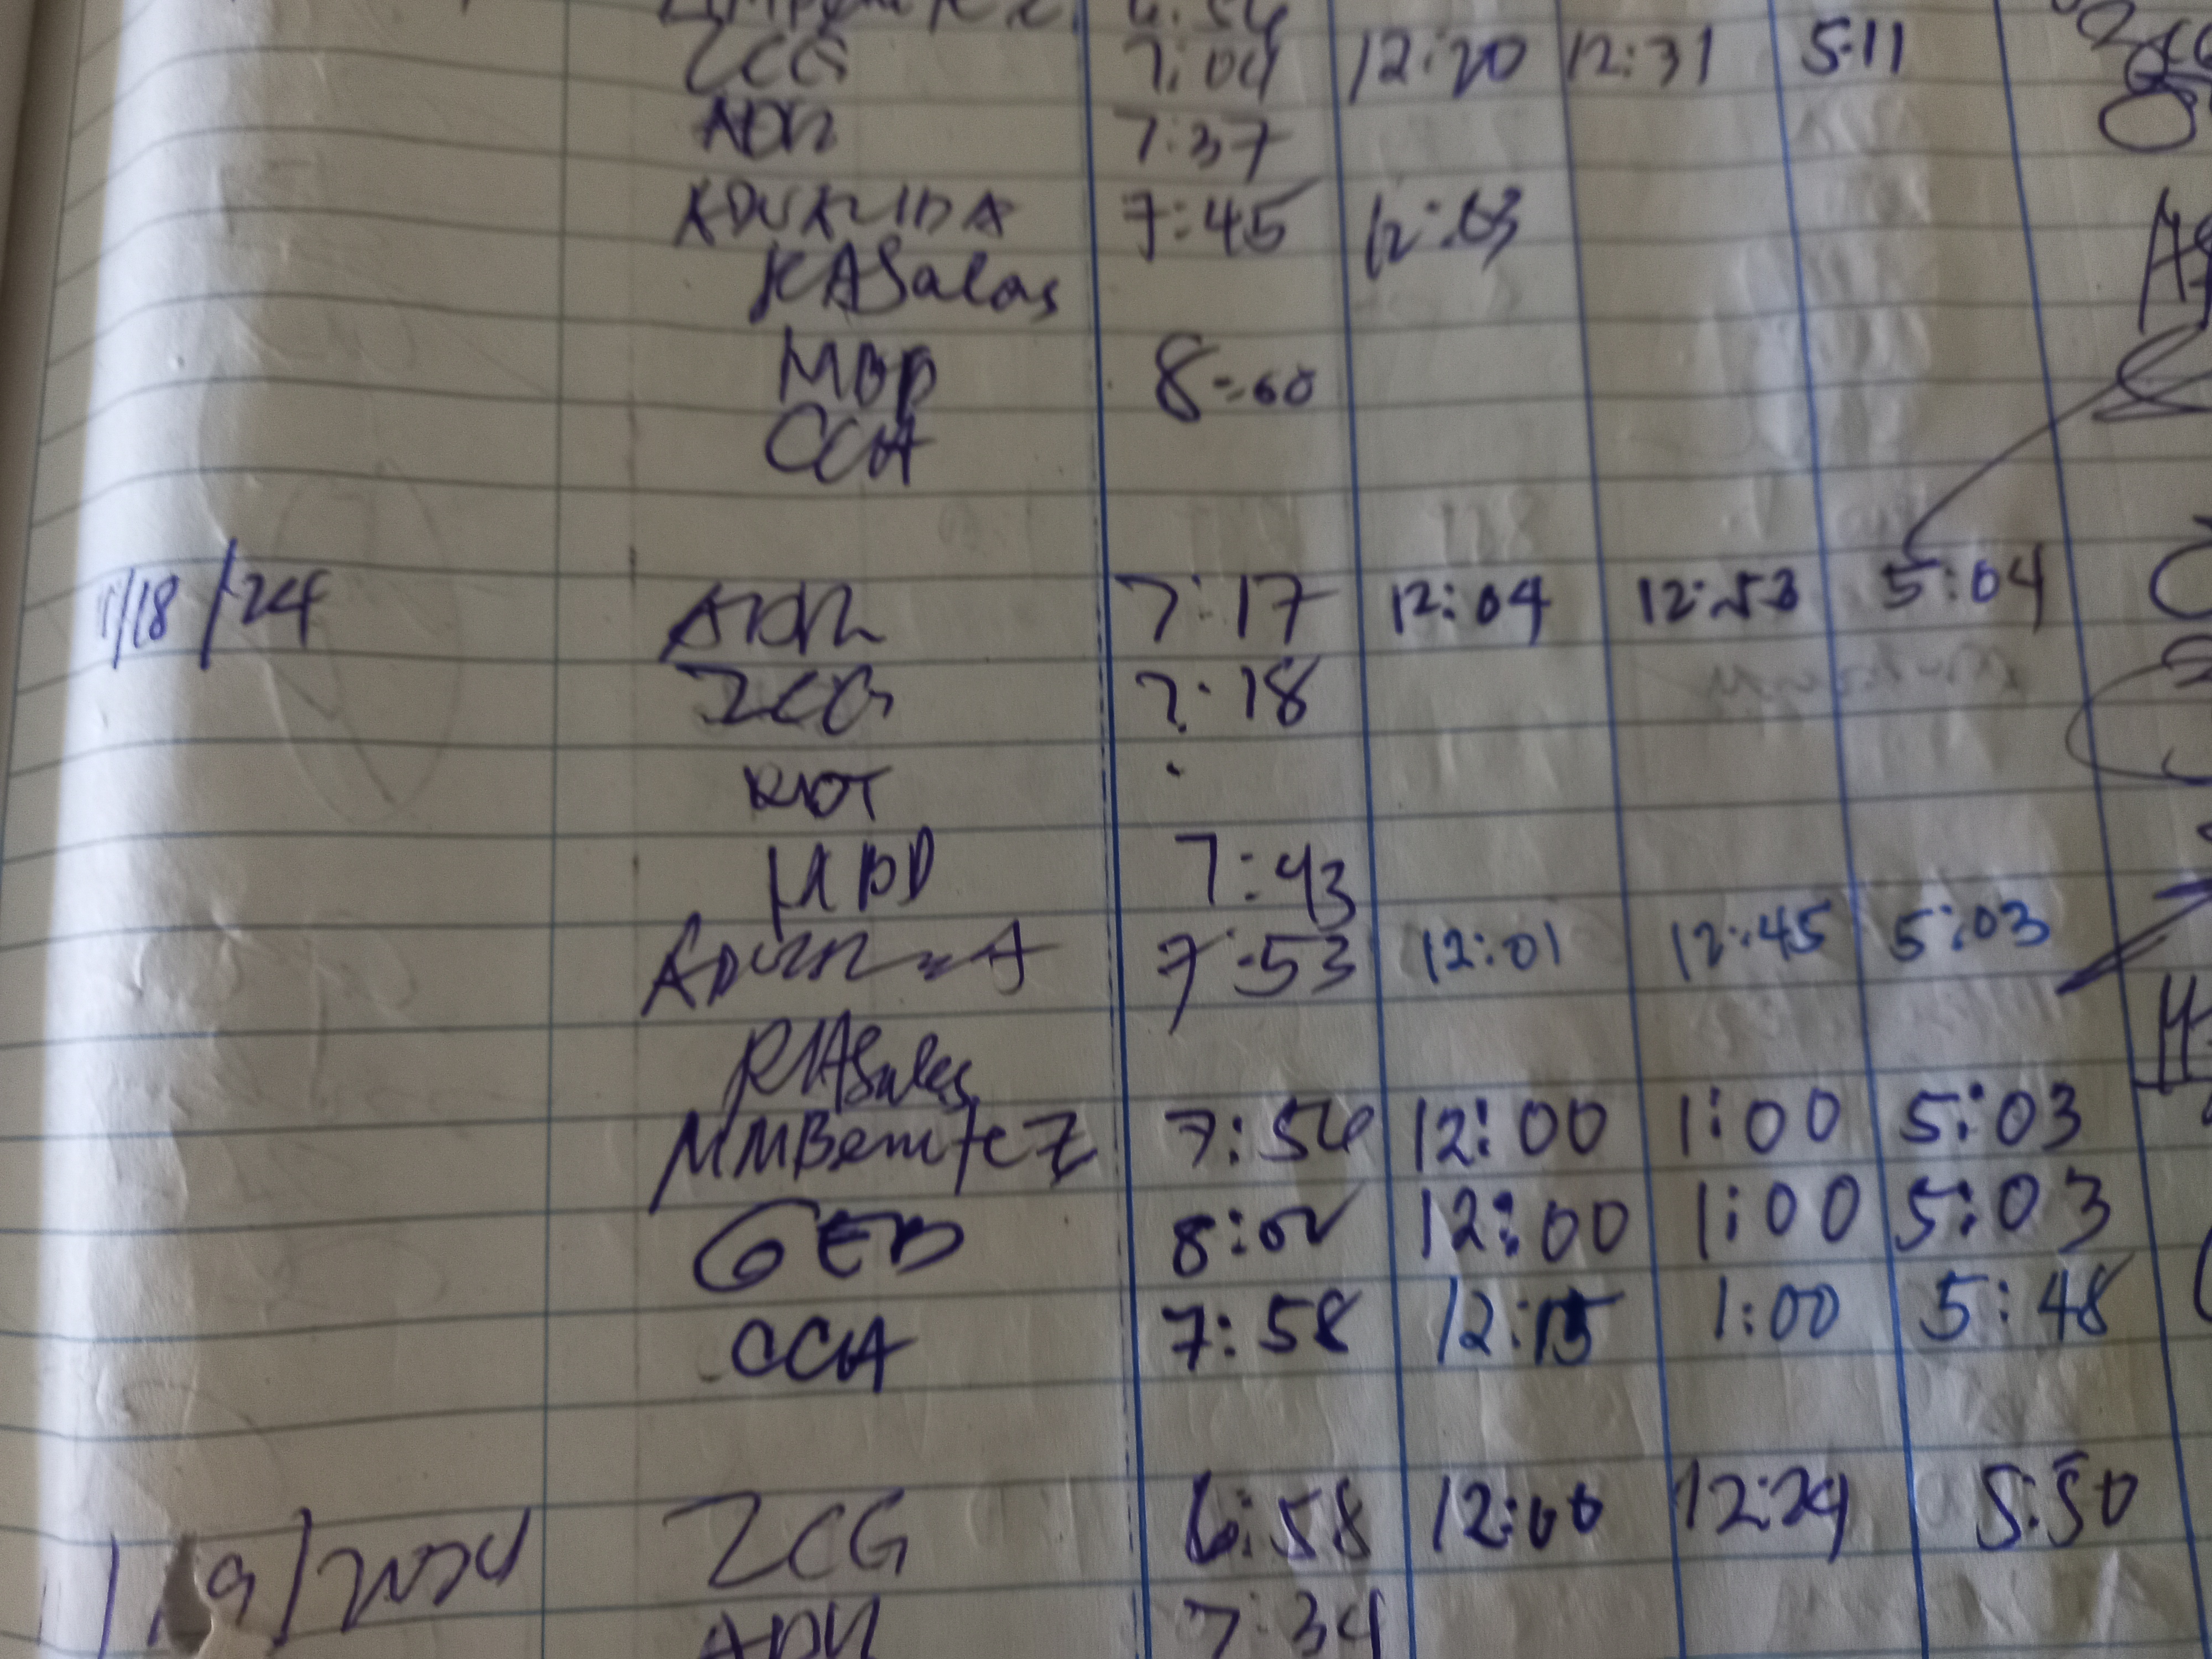 ZCG 7:04 12:20 12:31 5:11
ADR 7:37
7:45 12:03
KASalas
MBD 8:00
CCA
1/18/24 ADR 7:17 12:04 12:53 5:04
ZCG 7:18
MBD 7:43
7:53 12:01 12:45 5:03
RASalas
MMBenitez 7:56 12:00 1:00 5:03
GEB 8:02 12:00 1:00 5:03
CCA 7:58 12:15 1:00 5:48
19/2024 ZCG 6:58 12:00 12:24 5:50
ADR 7:34